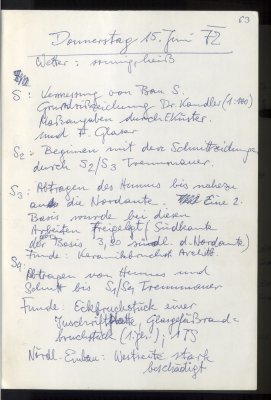 63
Donnerstag 15. Juni 72
Wetter: sonnig heiß
S: Vermessung von Bau S.
Grundrißzeichnung Dr. Kandler (1:100)
Maßangaben durch E. Küster
und H. Glaser
S2: Beginnen mit dem Schnitt
durch S2/S3 Trennmauer.
S3: Abtragen des Humus bis nahezu
an die Nordkante. Eine 2.
Basis wurde bei diesen
Arbeiten freigelegt (Südkante
der Basis 3,20 südl. d. Nordkante)
Funde: Keramikbruchst.
S9: Abtragen von Humus und
Schutt bis S8/S9 Trennmauer
Funde: Eckbruchstück einer
Inschriftplatte, Glasgefäß
bruchstück; 1 TS
Nördl. Einbau: Westseite stark
beschädigt